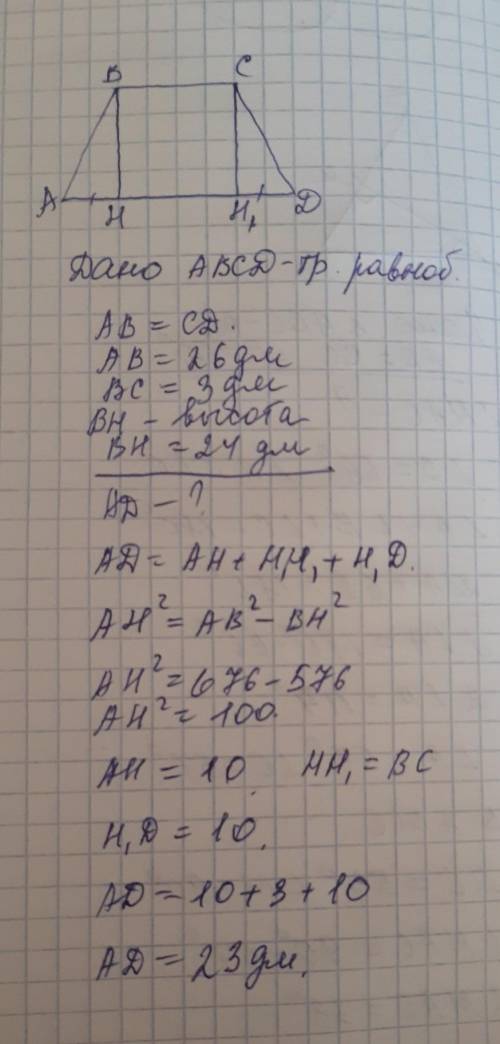 B C
A H H₁ D
Дано ABCD-тр. равноб.
AB = CD.
AB = 26 дм
BC = 3 дм
BH - высота
BH = 24 дм
AD - ?
AD = AH + HH₁ + H₁D.
AH² = AB² - BH²
AH² = 676 - 576
AH² = 100.
AH = 10. HH₁ = BC
H₁D = 10.
AD = 10 + 3 + 10
AD = 23 дм.